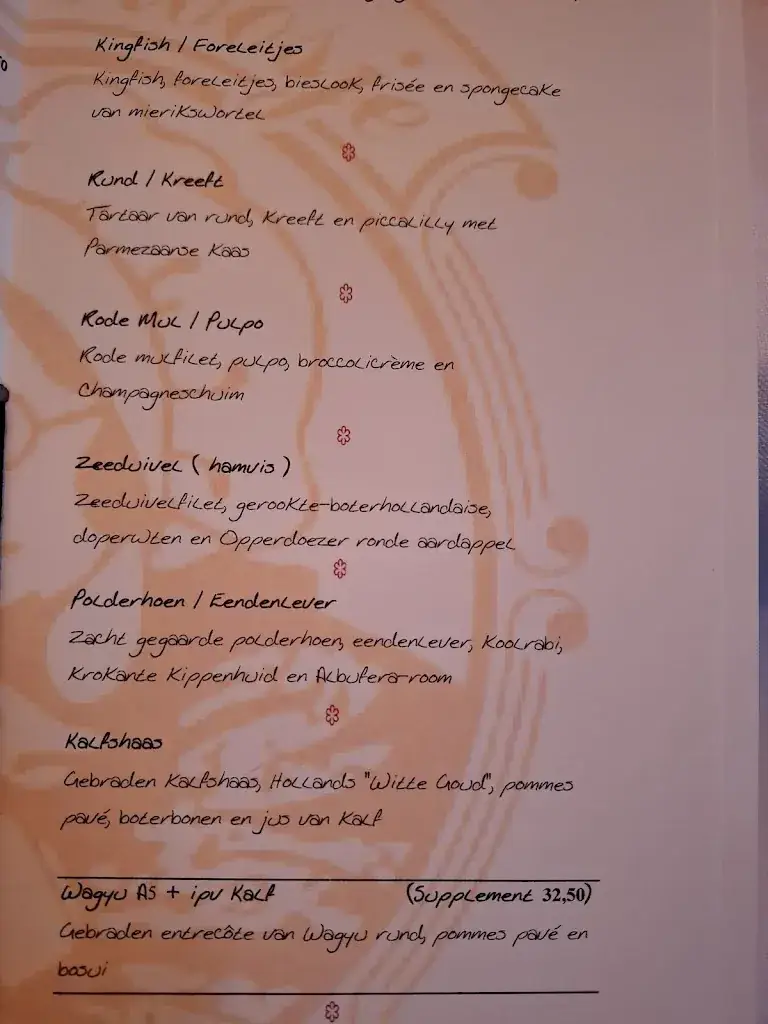 Kingfish / Foreleitjes
Kingfish, foreleitjes, bieslook, frisée en spongecake
van mierikswortel
Rund / Kreeft
Tartaar van rund, kreeft en piccalilly met
Parmezaanse kaas
Rode Mul / Pulpo
Rode mulfilet, pulpo, broccolicrème en
Champagneschuim
Zeeduivel ( hamvis )
Zeeduivelfilet, gerookte-boterhollandaise,
doperwten en Opperdoezer ronde aardappel
Polderhoen / Eendenlever
Zacht gegaarde polderhoen, eendenlever, koolrabi,
krokante kippenhuid en Albufera-room
Kalfshaas
Gebraden kalfshaas, Hollands "Witte Goud", pommes
pavé, boterbonen en jus van kalf
Wagyu A5 + ipv Kalf (Supplement 32,50)
Gebraden entrecôte van Wagyu rund, pommes pavé en
bosui